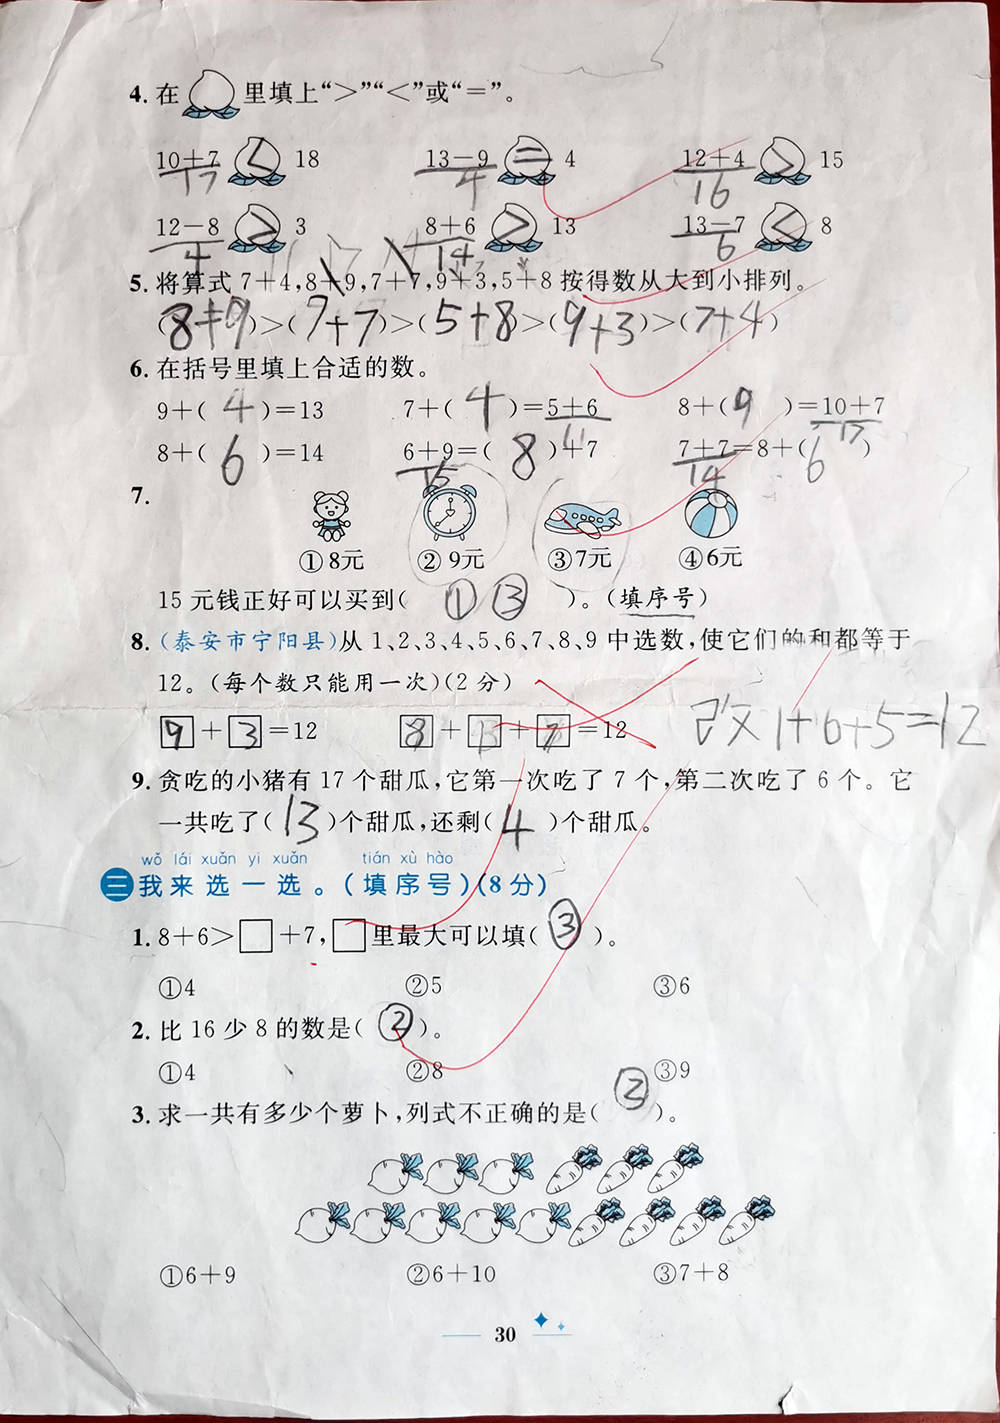 4. 在 里填上“>”“<”或“=”。
10+7 < 18 13-9 = 4 12+4 > 15
17 4 16
12-8 > 3 8+6 > 13 13-7 < 8
4 14 6
5. 将算式 7+4,8+9,7+7,9+3,5+8 按得数从大到小排列。
(8+9)>(7+7)>(5+8)>(9+3)>(7+4)
6. 在括号里填上合适的数。
9+( 4 )=13 7+( 4 )=5+6 8+( 9 )=10+7
11 17
8+( 6 )=14 6+9=( 8 )+7 7+7=8+( 6 )
15 14
7.
①8元 ②9元 ③7元 ④6元
15 元钱正好可以买到( ① ③ )。(填序号)
8. (泰安市宁阳县)从 1、2、3、4、5、6、7、8、9 中选数,使它们的和都等于
12。(每个数只能用一次)(2 分)
9+3=12 8+ + =12 改 1+6+5=12
9. 贪吃的小猪有 17 个甜瓜,它第一次吃了 7 个,第二次吃了 6 个。它
一共吃了( 13 )个甜瓜,还剩( 4 )个甜瓜。
wǒ lái xuǎn yi xuǎn tián xù hào
三 我来选一选。(填序号)(8分)
1. 8+6>□+7,□里最大可以填( ③ )。
①4 ②5 ③6
2. 比 16 少 8 的数是( ② )。
①4 ②8 ③9
3. 求一共有多少个萝卜,列式不正确的是( ② )。
①6+9 ②6+10 ③7+8
30